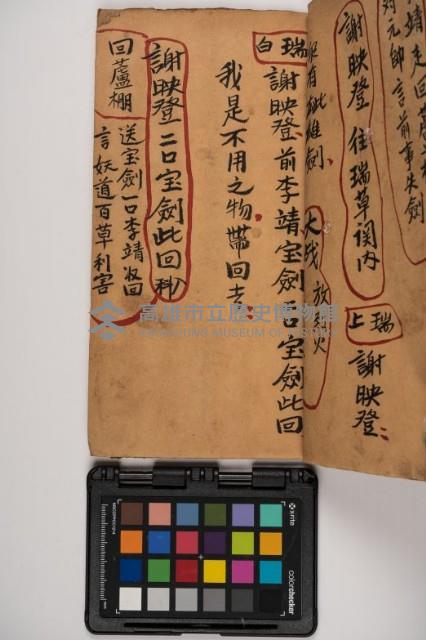 靖走回蘆
对元帥言前事失劍
謝映登住瑞草洞内
瑞上
謝映登
有此雄劍
火戏 放烟火
瑞白
謝映登前李靖宝劍二口宝劍此回
我是不用之物帶回去
謝映登二口宝劍此回科
回蘆棚
送宝劍一口李靖收回
言妖道百草利害
高雄市立歷史博物館
KAOHSIUNG MUSEUM OF HISTORY
x-rite
colorchecker